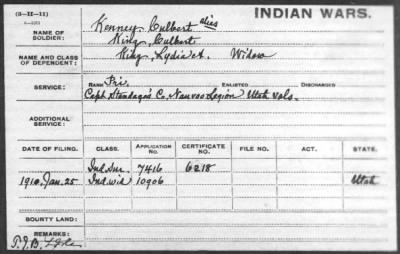 (3-II-11)
INDIAN WARS.
NAME OF SOLDIER: Kenney, Culbert alias
King, Culbert
NAME AND CLASS OF DEPENDENT: King, Lydia A. Widow
SERVICE: RANK Pri. ENLISTED DISCHARGED
Capt. Standage's Co. Nauvoo Legion Utah Vols.
ADDITIONAL SERVICE:
DATE OF FILING. CLASS. APPLICATION NO. CERTIFICATE NO. FILE NO. ACT. STATE.
Ind. Sur. 7416 6218
1910, Jan. 25 Ind. wid 10906 Utah
BOUNTY LAND:
REMARKS: